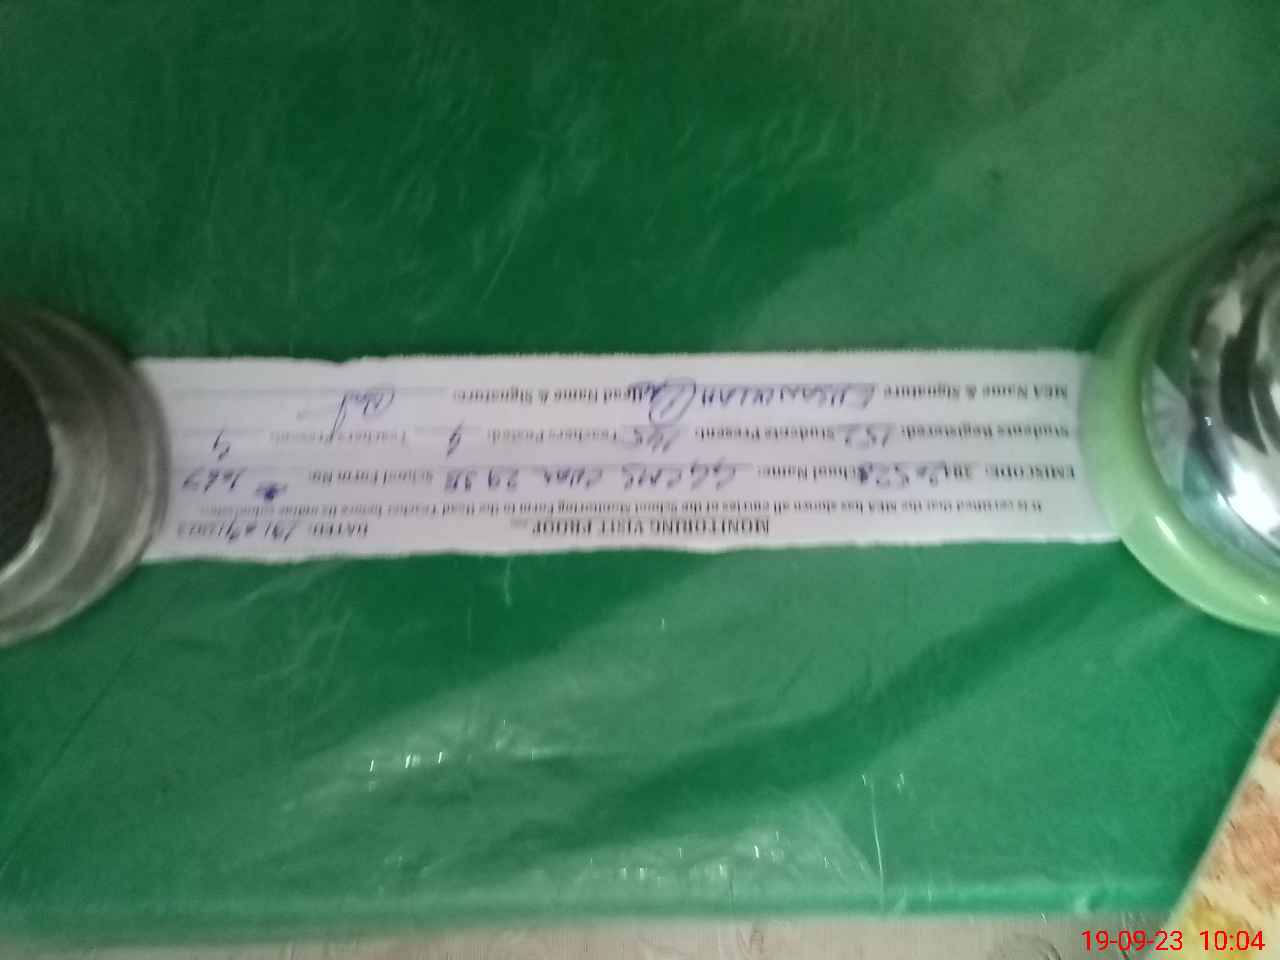 MONITORING VISIT PROOF
DATED: 19/09/2023
It is certified that the MEA has shown all entries of the School Monitoring Form to the Head Teacher before its online submission.
EMISCODE: School Name: GGCMS CHAK School Form No:
Students Registered: 152 Students Present: 145 Teachers Posted: 4 Teachers Present: 4
MEA Name & Signature EHSAN ULLAH Head Name & Signature:
19-09-23 10:04